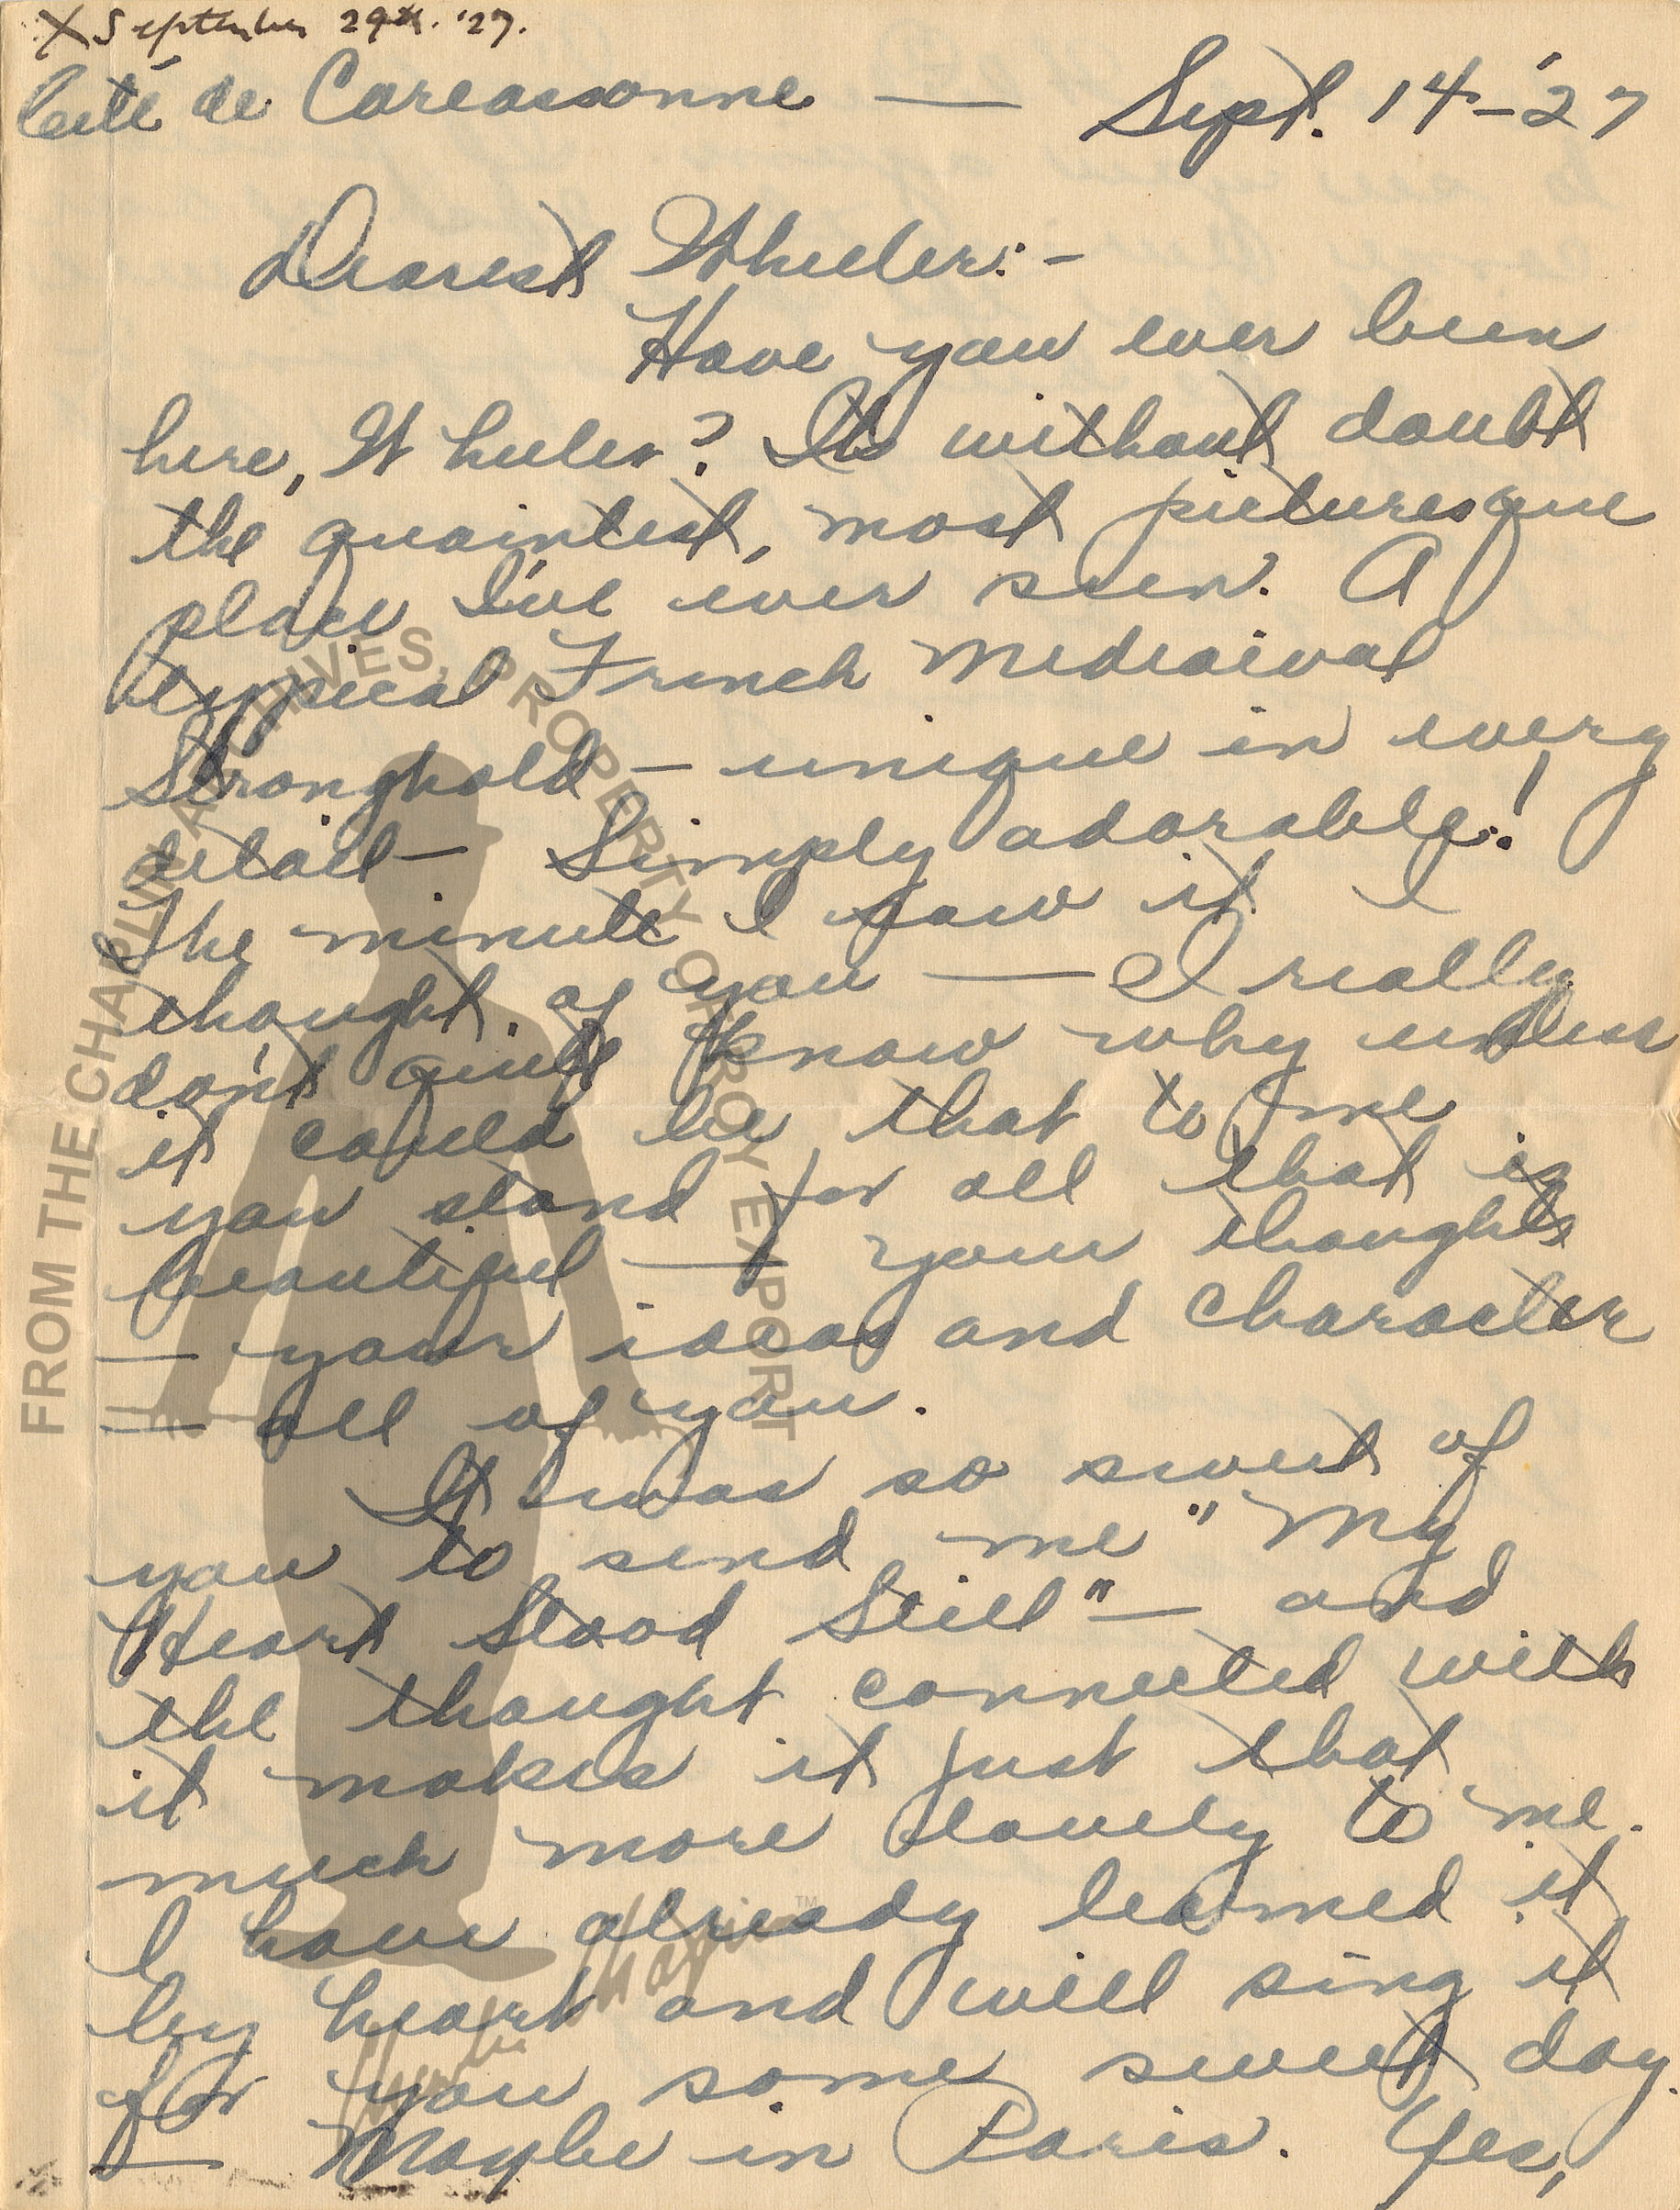 X September 29th. '27.
Cité de Carcassonne — Sept. 14-'27
Dearest Wheeler:-
Have you ever been
here, Wheeler? Its without doubt
the quaintest, most picturesque
place I've ever seen. A
typical French Mediaival
Stronghold - unique in every
detail - Simply adorable!
The minute I saw it I
thought of you — I really
don't quite know why unless
it could be that to me
you stand for all that is
beautiful — your thoughts
— your ideas and character
— all of you.
It was so sweet of
you to send me "My
Heart Stood Still" — and
the thought connected with
it makes it just that
much more lovely to me.
I have already learned it
by heart and will sing it
for you some sweet day.
— Maybe in Paris. Yes,
FROM THE CHAPLIN ARCHIVES, PROPERTY OF ROY EXPORT
Charlie Chaplin™